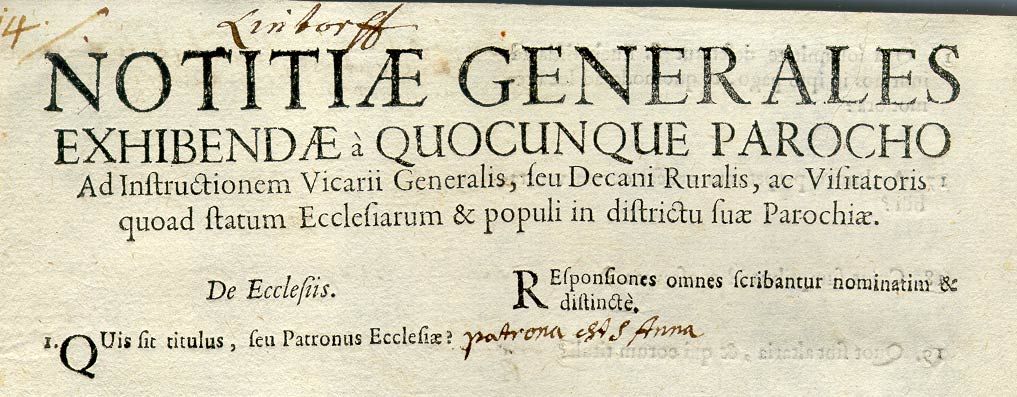 14.
Lintorff
NOTITIÆ GENERALES
EXHIBENDÆ à QUOCUNQUE PAROCHO
Ad Inſtructionem Vicarii Generalis, ſeu Decani Ruralis, ac Viſitatoris
quoad ſtatum Eccleſiarum & populi in diſtrictu ſuæ Parochiæ.
De Eccleſiis.
REſponſiones omnes ſcribantur nominatim &
diſtinctè.
1. QUis ſit titulus, ſeu Patronus Eccleſiæ? patrona est S Anna